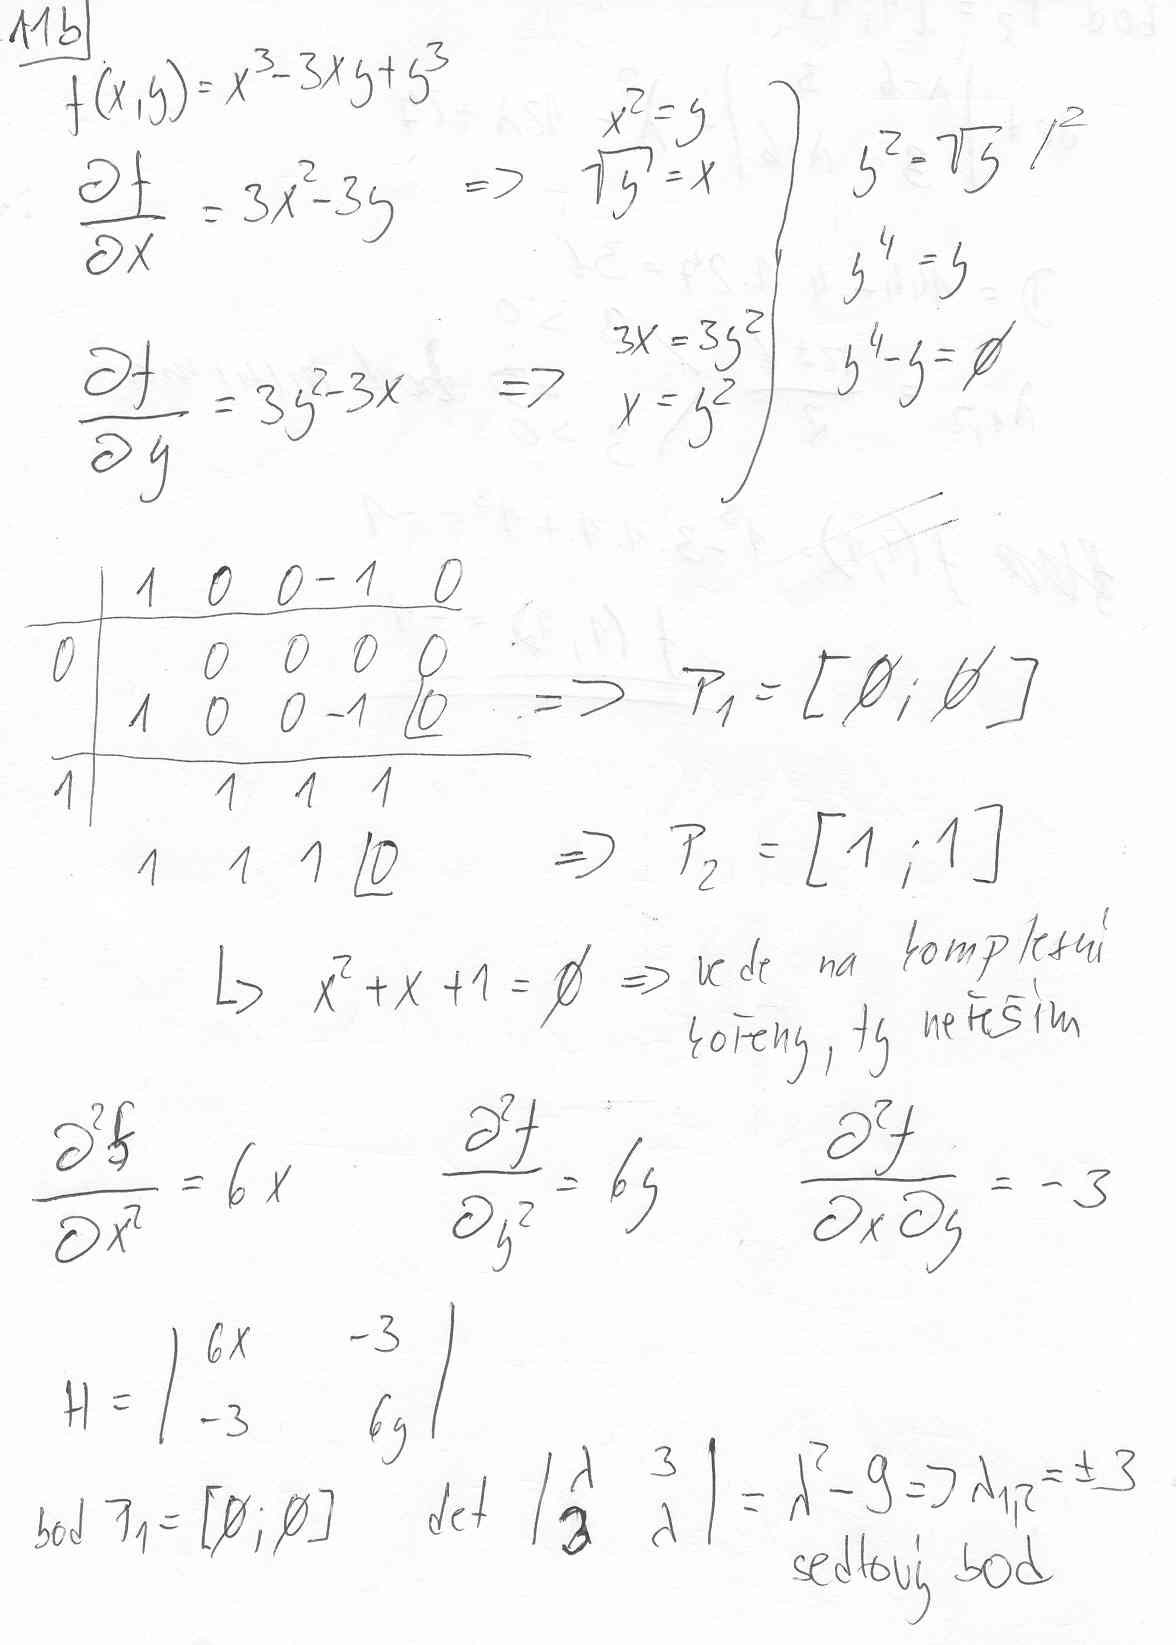 11b
f(x,y) = x³ - 3xy + y³
∂f/∂x = 3x² - 3y => x² = y
√y = x
∂f/∂y = 3y² - 3x => 3x = 3y²
x = y²
y² = √y /²
y⁴ = y
y⁴ - y = 0
1 0 0 -1 0
0 0 0 0 0
1 0 0 -1 0 => P₁ = [0; 0]
1 1 1 1
1 1 1 0 => P₂ = [1 ; 1]
↳ x² + x + 1 = 0 => vede na komplexní
kořeny, ty neřeším
∂²f/∂x² = 6x ∂²f/∂y² = 6y ∂²f/∂x∂y = -3
H = | 6x -3 |
| -3 6y |
bod P₁ = [0; 0] det | λ 3 | = λ² - 9 => λ₁,₂ = ±3
| 3 λ |
sedlový bod